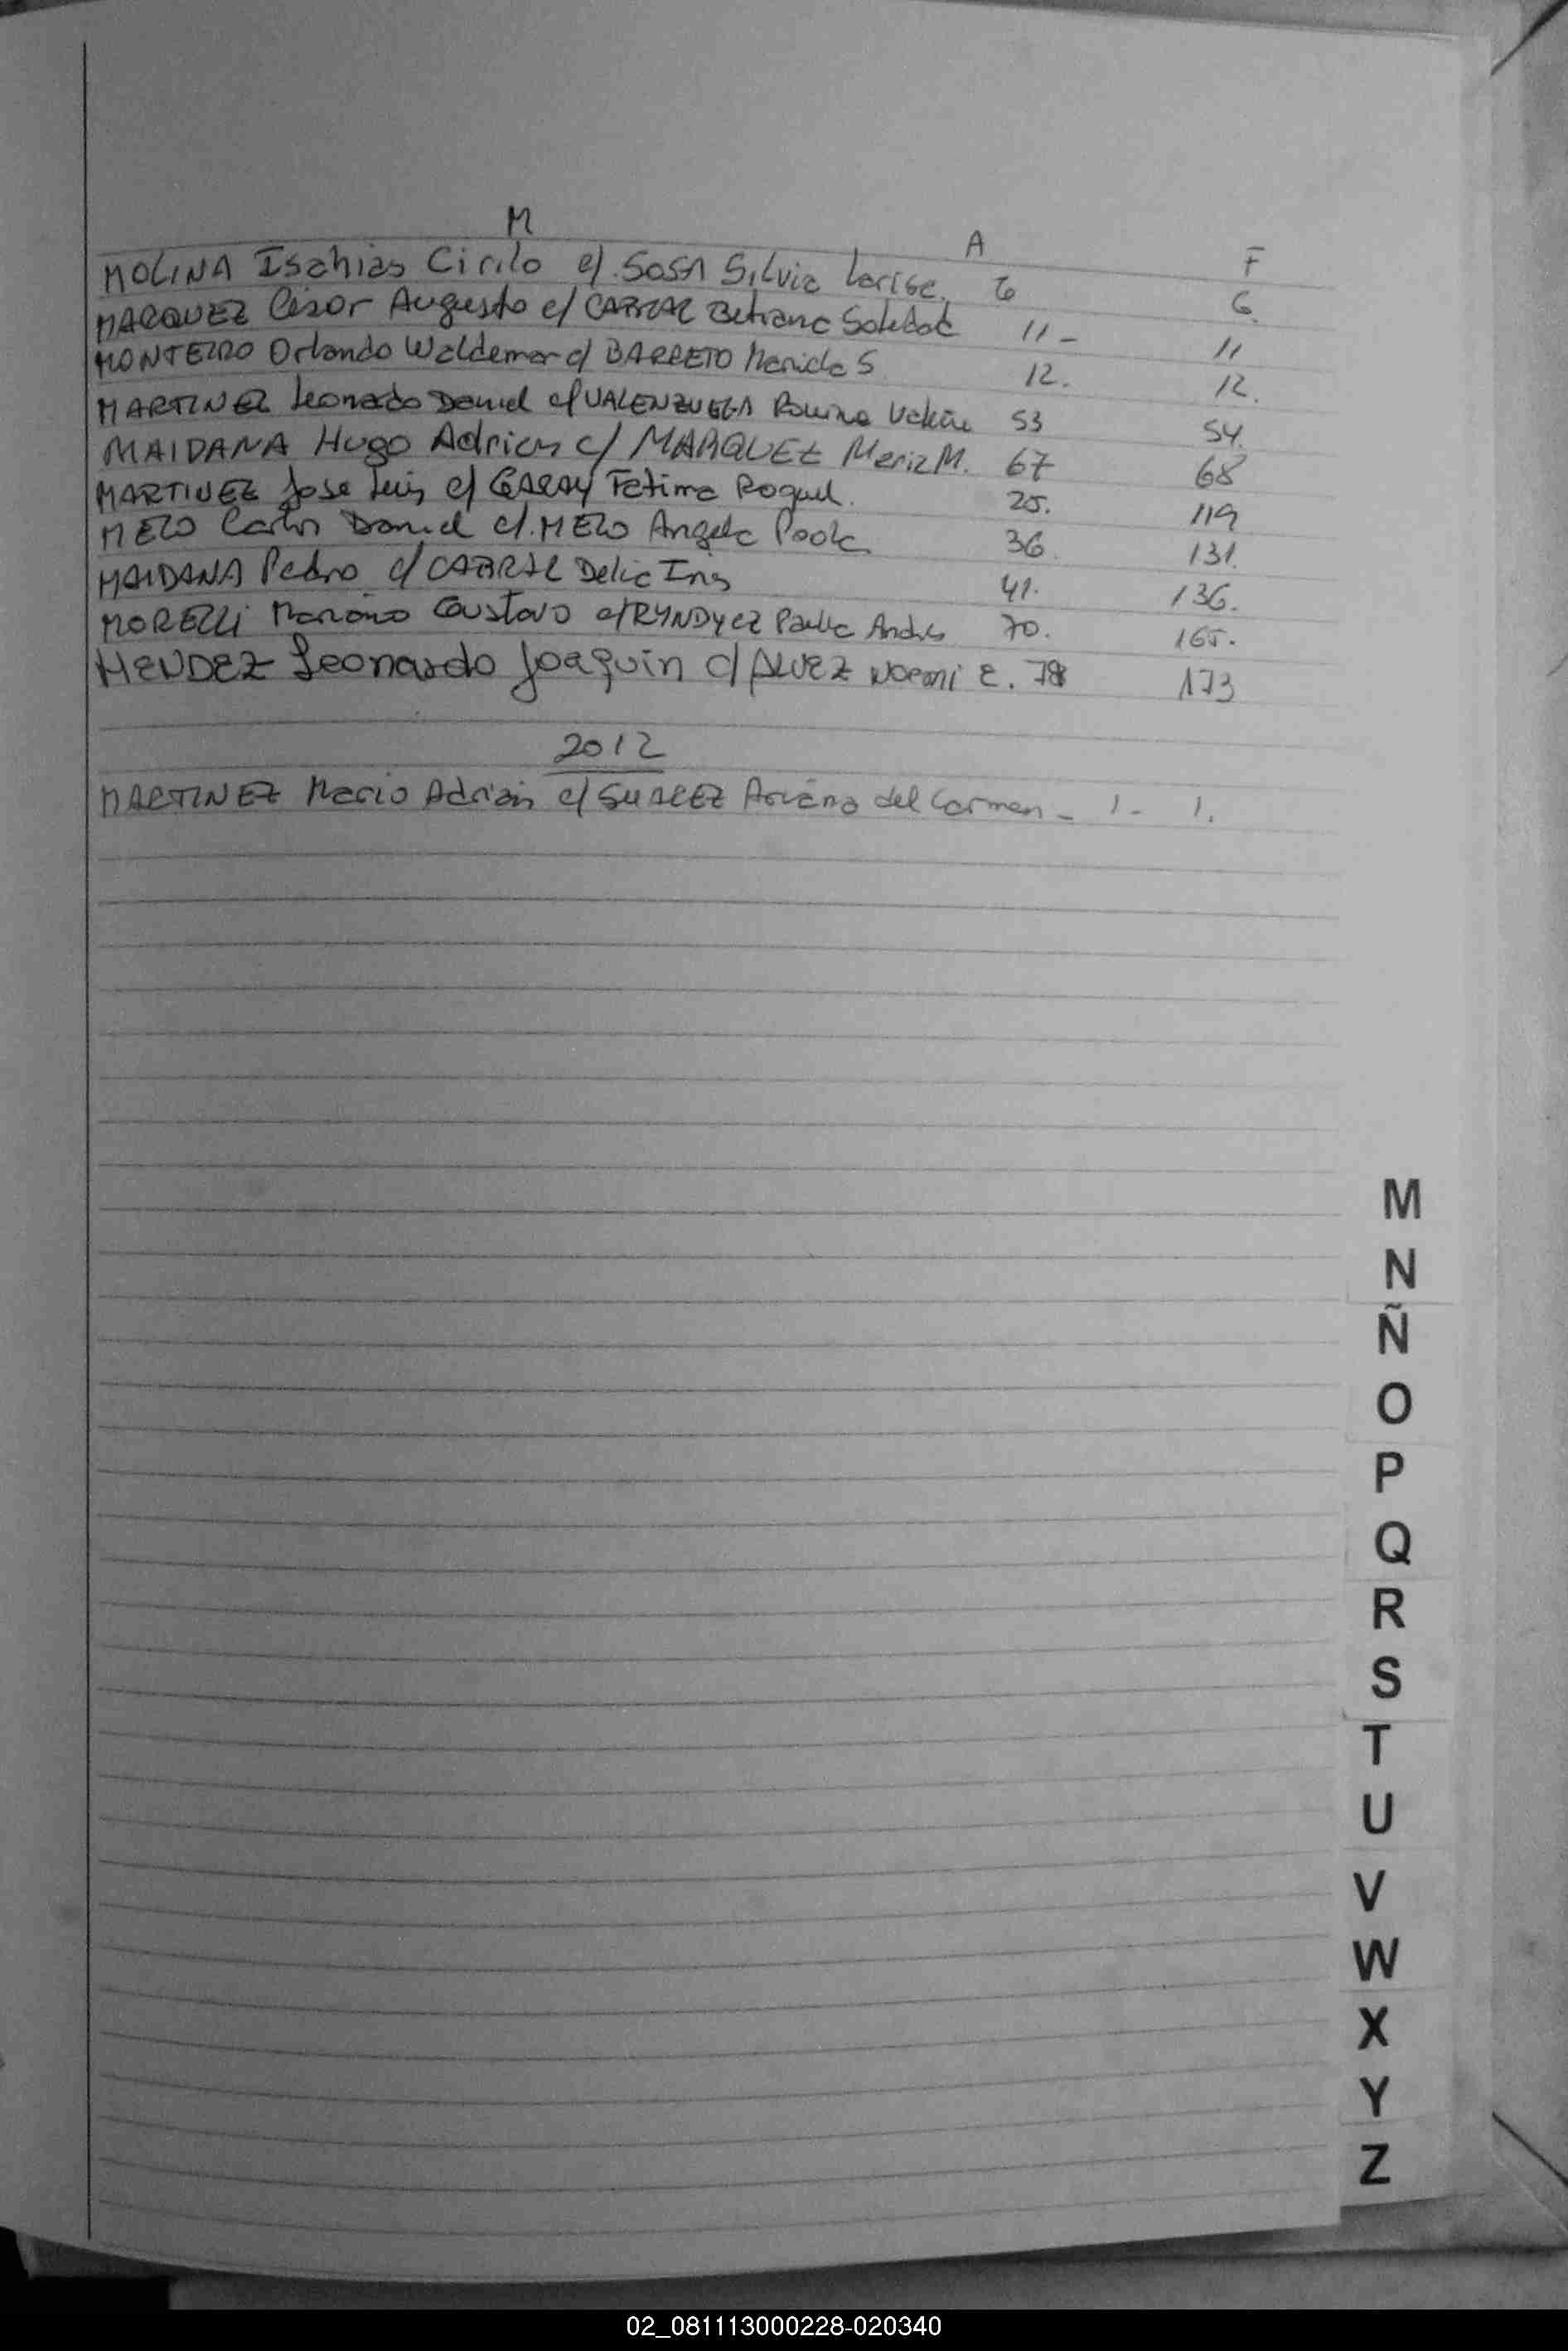 M
A F
MOLINA Isahias Cirilo c/ SOSA Silvia Larisa. 6 6.
MARQUEZ César Augusto c/ CABRAL Betiana Soledad 11- 11
MONTEIRO Orlando Waldemar c/ BARRETO Maricla S 12. 12.
MARTINEZ Leonardo Daniel c/ VALENZUELA Romina 53 54.
MAIDANA Hugo Adrian c/ MARQUEZ Maria M. 67 68
MARTINEZ Jose Luis c/ GARAY Fatima Raquel. 25. 119
MELO Carlos Daniel c/. MELO Angela Paola 36. 131.
MAIDANA Pedro c/ CABRAL Delia Ines 41. 136.
MORELLI Mariano Gustavo c/ RYNDYCZ Paula Andrea 70. 165.
MENDEZ Leonardo Joaquin c/ ALVEZ Noemi E. 78 173
2012
MARTINEZ Mario Adrián c/ SUAREZ del Carmen - 1- 1.
M
N
Ñ
O
P
Q
R
S
T
U
V
W
X
Y
Z
02_081113000228-020340